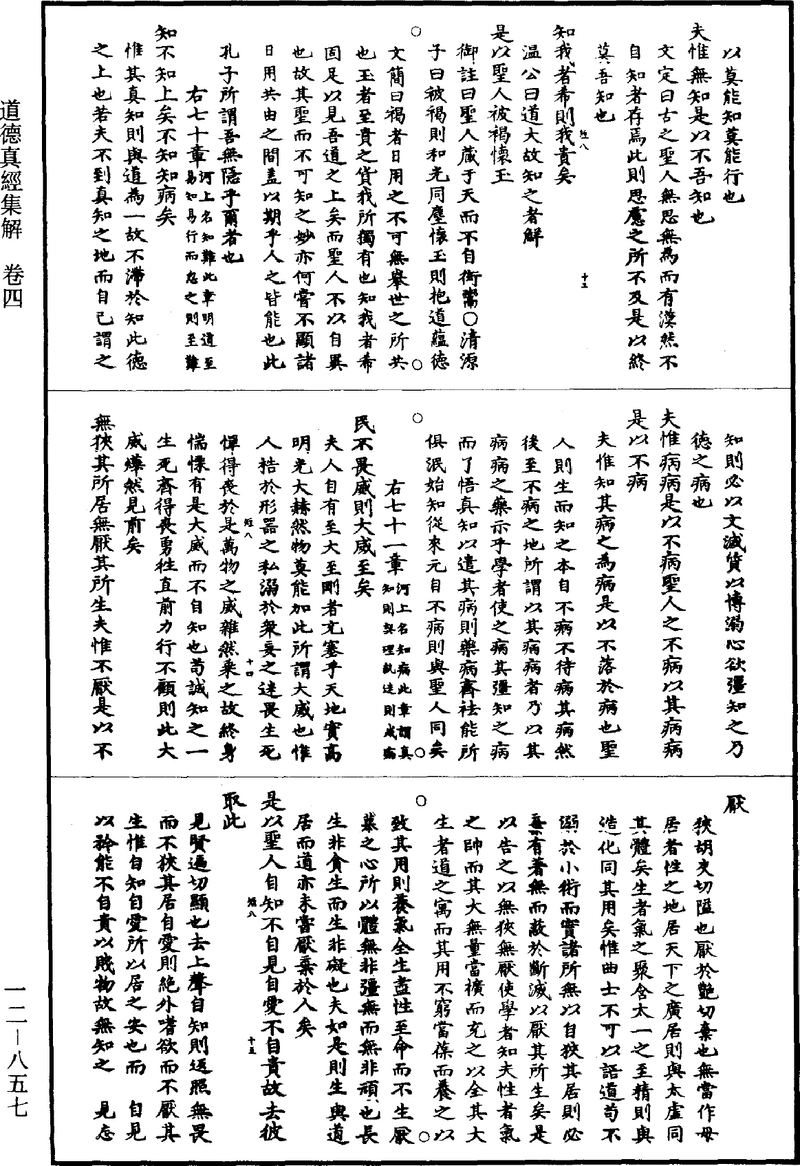 以莫能知莫能行也
夫惟無知是以不吾知也
文定曰古之聖人無思無為而有漠然不
自知者存焉此則思慮之所不及是以終
莫吾知也
知我者希則我貴矣
温公曰道大故知之者鮮
是以聖人被褐懷玉
御註曰聖人藏于天而不自衒鬻○清源
子曰被褐則和光同塵懷玉則抱道蘊德
文簡曰褐者日用之不可無舉世之所共
也玉者至貴之貨我所獨有也知我者希
固足以見吾道之上矣而聖人不以自異
也故其聖而不可知之妙亦何嘗不顯諸
日用共由之間蓋以期乎人之皆能也此
孔子所謂吾無隱乎爾者也
右七十章河上名知難此章明道至易知易行而忽之則至難
知不知上矣不知知病矣
惟其真知則與道為一故不滯於知此德
之上也若夫不到真知之地而自己謂之
知則必以文滅質以博溺心欲彊知之乃
德之病也
夫惟病病是以不病聖人之不病以其病病
是以不病
夫惟知其病之為病是以不落於病也聖
人則生而知之本自不病不待病其病然
後至不病之地所謂以其病病者乃以其
病病之藥示乎學者使之病其彊知之病
而了悟真知以遣其病則藥病齊祛能所
俱泯始知從來元自不病則與聖人同矣
右七十一章河上名知病此章謂真知則與理執迷則成病
民不畏威則大威至矣
夫人自有至大至剛者充塞乎天地實高
明光大赫然物莫能加此所謂大威也惟
人梏於形器之私溺於衆妄之迷畏生死
憚得喪於是萬物之威雜然乘之故終身
惴慄有是大威而不自知也苟誠知之一
生死齊得喪勇往直前力行不顧則此大
威燁然見前矣
無狹其所居無厭其所生夫惟不厭是以不
厭
狹胡夾切隘也厭於豔切棄也無當作毋
居者性之地居天下之廣居則與太虛同
其體矣生者氣之聚含太一之至精則與
造化同其用矣惟曲士不可以語道苟不
溺於小術而實諸所無以自狹其居則必
棄有著無而蔽於斷滅以厭其所生矣是
以告之以無狹無厭使學者知夫性者氣
之帥而其大無量當擴而充之以全其大
生者道之寓而其用不窮當葆而養之以
致其用則養氣全生盡性至命而不生厭
慕之心所以體無非彊無而無非頑也長
生非貪生而生非礙也夫如是則生與道
居而道亦未嘗厭棄於人矣
是以聖人自知不自見自愛不自貴故去彼
取此
見賢遍切顯也去上聲自知則返照無畏
而不狹其居自愛則絶外嗜欲而不厭其
生惟自知自愛所以居之安也而 自見
以矜能不自貴以賤物故無知之 見忘
道德真經集解 卷四
一二－八五七